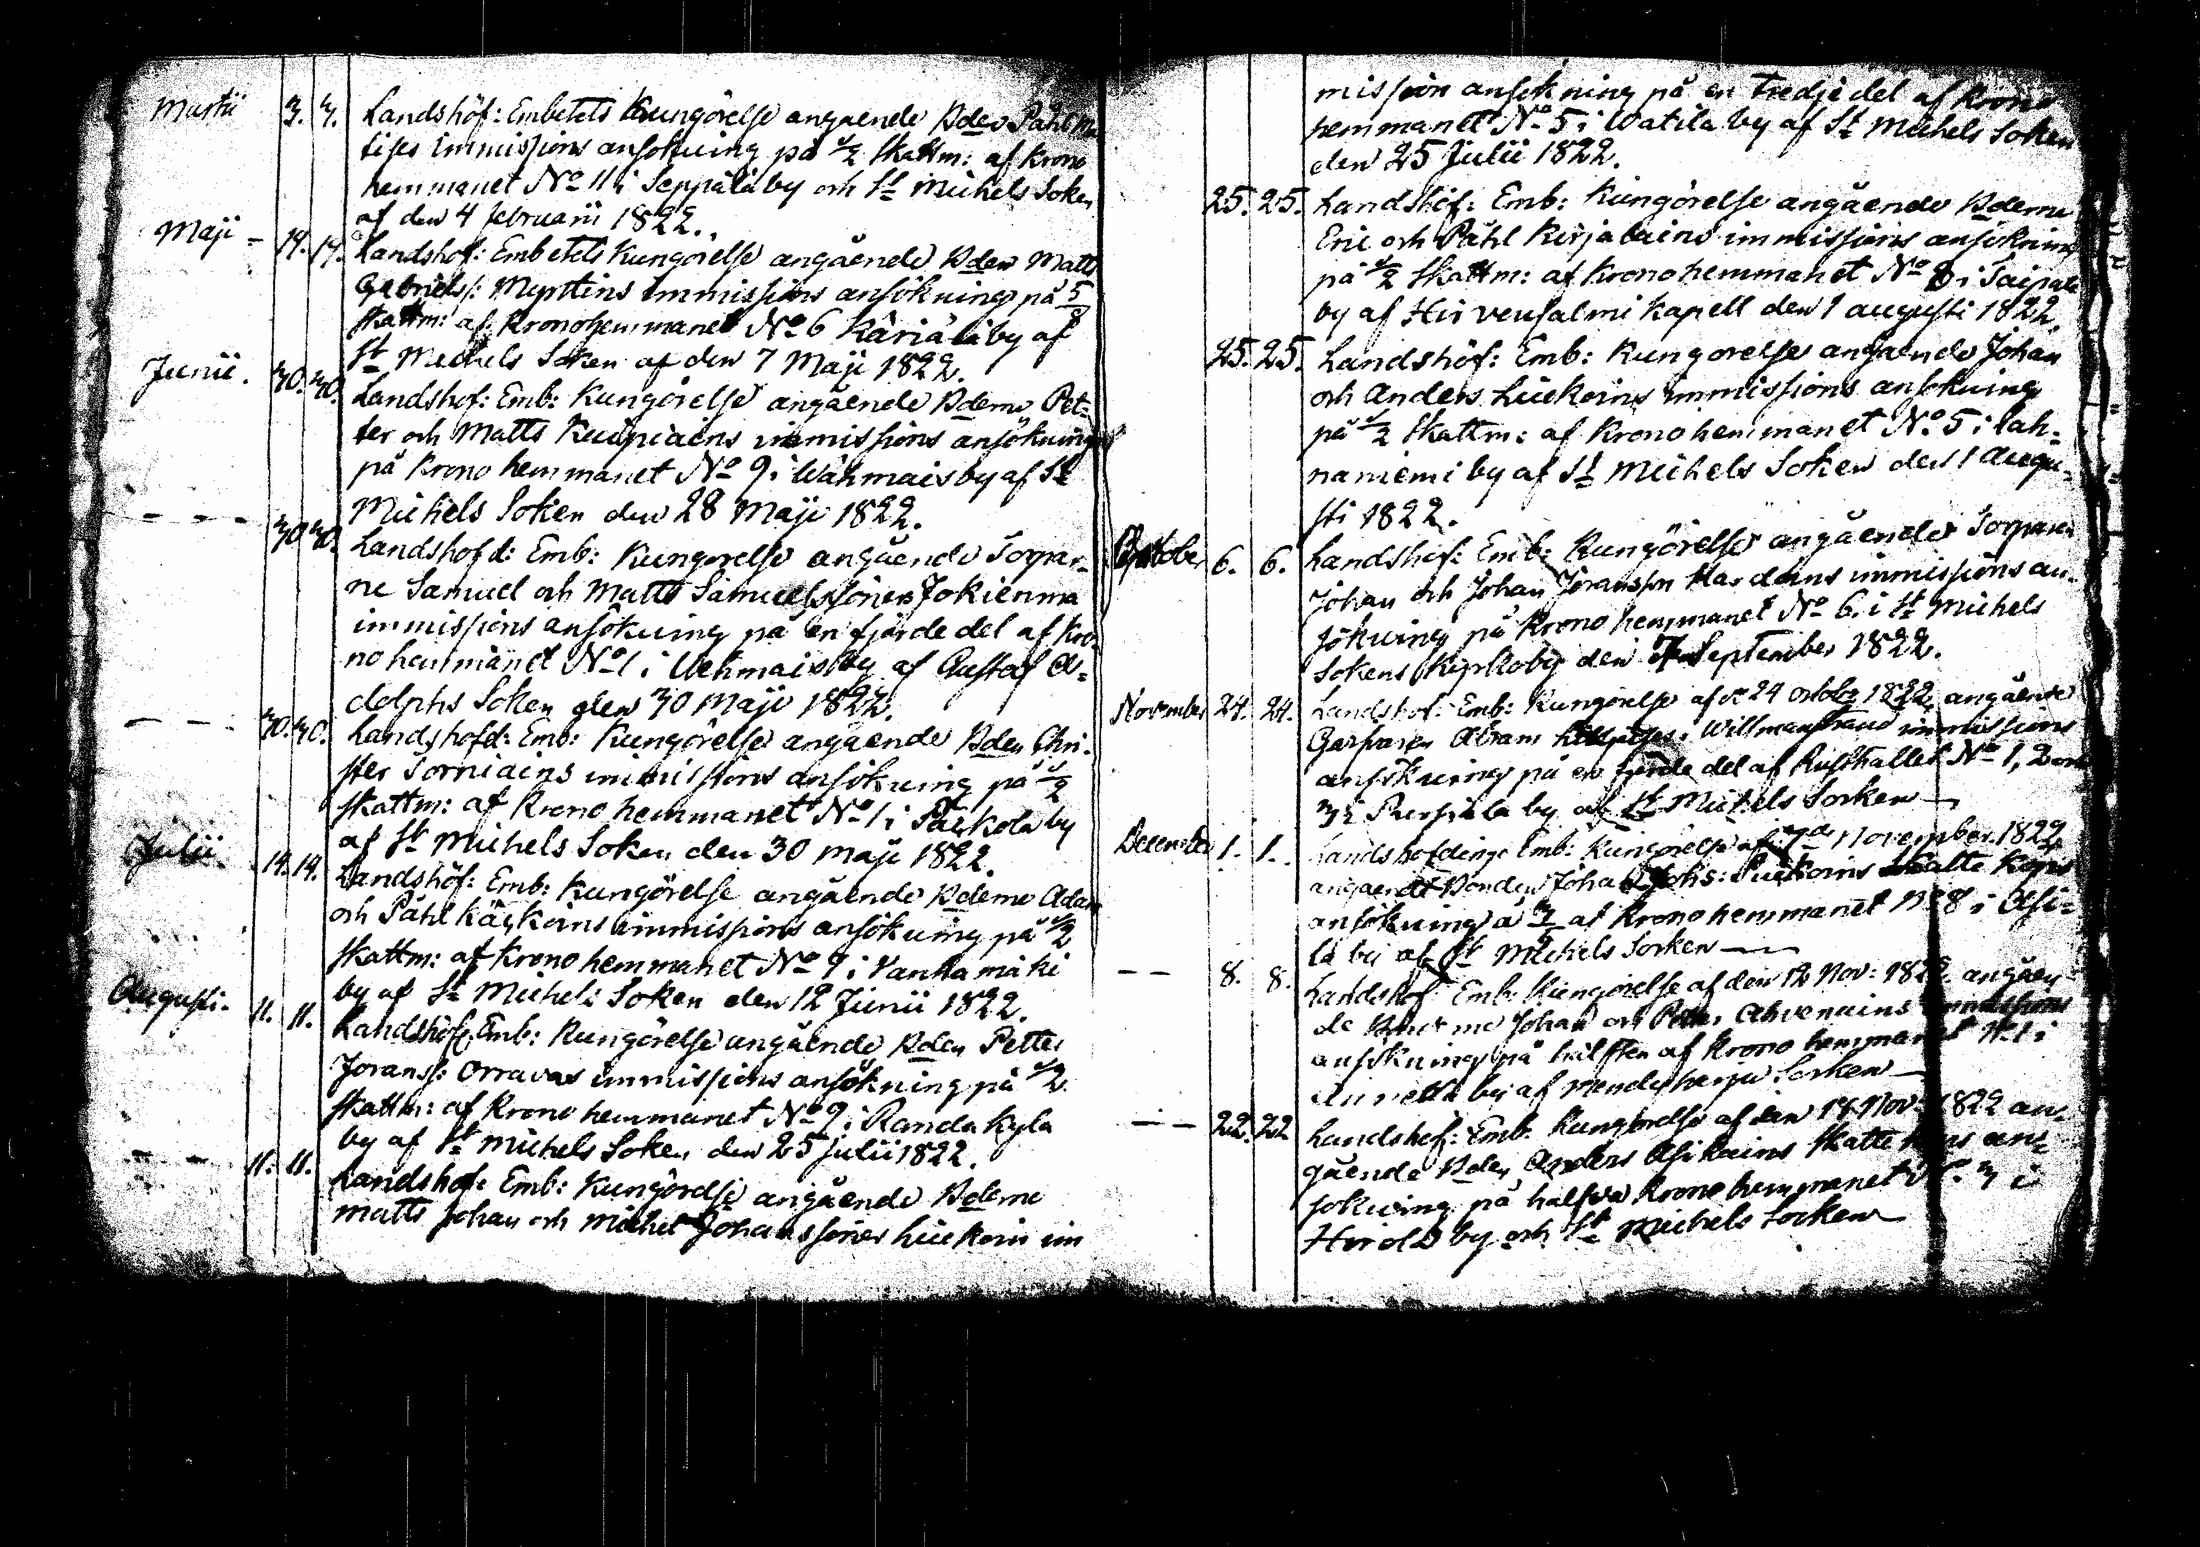 Martii 3. 3. Landshöf: Embetets Kungörelse angaende Bden Påhl Ma
tises Immissions ansökning på 1/2 Skattm: af Krono
hemmanet No 11 i Seppälä by och St Michels Soken
af den 4 februarii 1822.
Maji - 14. 14. Landshöf: Embetets Kungörelse angående Bden Matts
Gabriels: Myntins immissions ansökning på 5/8
Skattm: af Kronohemmanet No 6 Käriälä by af
St Michels Soken af den 7 Maji 1822.
Junii. 30. 30. Landshöf: Emb: Kungörelse angående Bderne Pet-
ter och Matts Kuupiains immissions ansökning
på Krono hemmanet No 9 i Wåhmais by af St
Michels Soken den 28 Maji 1822.
- - - - 30 30. Landshöfd: Emb: Kungörelse angående Torpar-
ne Samuel och Matts Samuelssöner Jokienma
immissions ansökning på en fjärde del af Kro-
no hemmanet No 1 i Uehmais by af Gustaf A-
dolphs Soken den 30 Maji 1822.
- - - 30. 30. Landshöfd: Emb: Kungörelse angående Bden Chri-
ster Torniains immissions ansökning på 1/2
Skattm: af Krono hemmanet No 1 i Parkola by
af St Michels Soken den 30 Maji 1822.
Julii. 14. 14. Landshöf: Emb: Kungörelse angående Bderne Adam
och Påhl Käikoins immissions ansökning på 1/2
Skattm: af Krono hemmanet No 9 i Vanhamäki
by af St Michels Soken den 12 Junii 1822.
Augusti. 11. 11. Landshöf: Emb: Kungörelse angående Bden Petter
Joranss: Orravas immissions ansökning på 1/2
Skattm: af Krono hemmanet No 9 i Randakyla
by af St Michels Soken den 25 Julii 1822.
- - - 11. 11. Landshöf: Emb: Kungörelse angående Bderne
Matts Johan och Michel Johanssöner Liiekoin im
mission ansökning på en Tredje del af Krono
hemmanet No 5 i Watila by af St Michels Soken
den 25 Julii 1822.
25. 25. Landshöf: Emb: Kungörelse angående Bderne
Eric och Påhl Kirjalains immissions ansökning
på 1/2 Skattm: af Kronohemmanet No 8 i Saipale
by af Hirvensalmi Kapell den 1 augusti 1822.
25. 25. Landshöf: Emb: Kungörelse angående Johan
och Anders Liiekoins immissions ansökning
på 1/2 Skattm: af Krono hemmanet No 5 i Lah-
naniemi by af St Michels Soken den 1 Augu-
sti 1822.
October 6. 6. Landshöf: Emb: Kungörelse angående Torparen
Johan och Johan Joransson Hardains immissions an-
sökning på Krono hemmanet No 6. i St Michels
Sokens Kyrkoby den 7 September 1822.
November 24. 24. Landshöf: Emb: Kungörelse af d 24 October 1822 angående
Garfvaren Abram i Willmanstrand immissions
ansökning på en fjerde del af Rusthållet No 1, 2 och
3 i Pursiala by af St Michels Socken —
December 1. 1. Landshöfdinge Emb: Kungörelse af November 1822
angaende Bonden Johan Johs: Puekoins Skatte Köps
ansökning å af Krono hemmanet No 8 i Asi-
la by af St Michels Socken —
- - 8. 8. Landshöf: Emb: Kungörelse af den 12 Nov: 1822 angåen-
de Bönderne Johan och Petter Ahvenains immissions
ansökning på hälften af Krono hemmanet No 1 i
by af Mendyharju Socken —
- - - 22. 22 Landshöf: Emb: Kungörelse af den 14 Nov: 1822 an-
gående Bden Anders Asikains Skatte Köps an-
sökning på halfva Kronohemmanet No 3 i
Hirola by och St Michels Socken